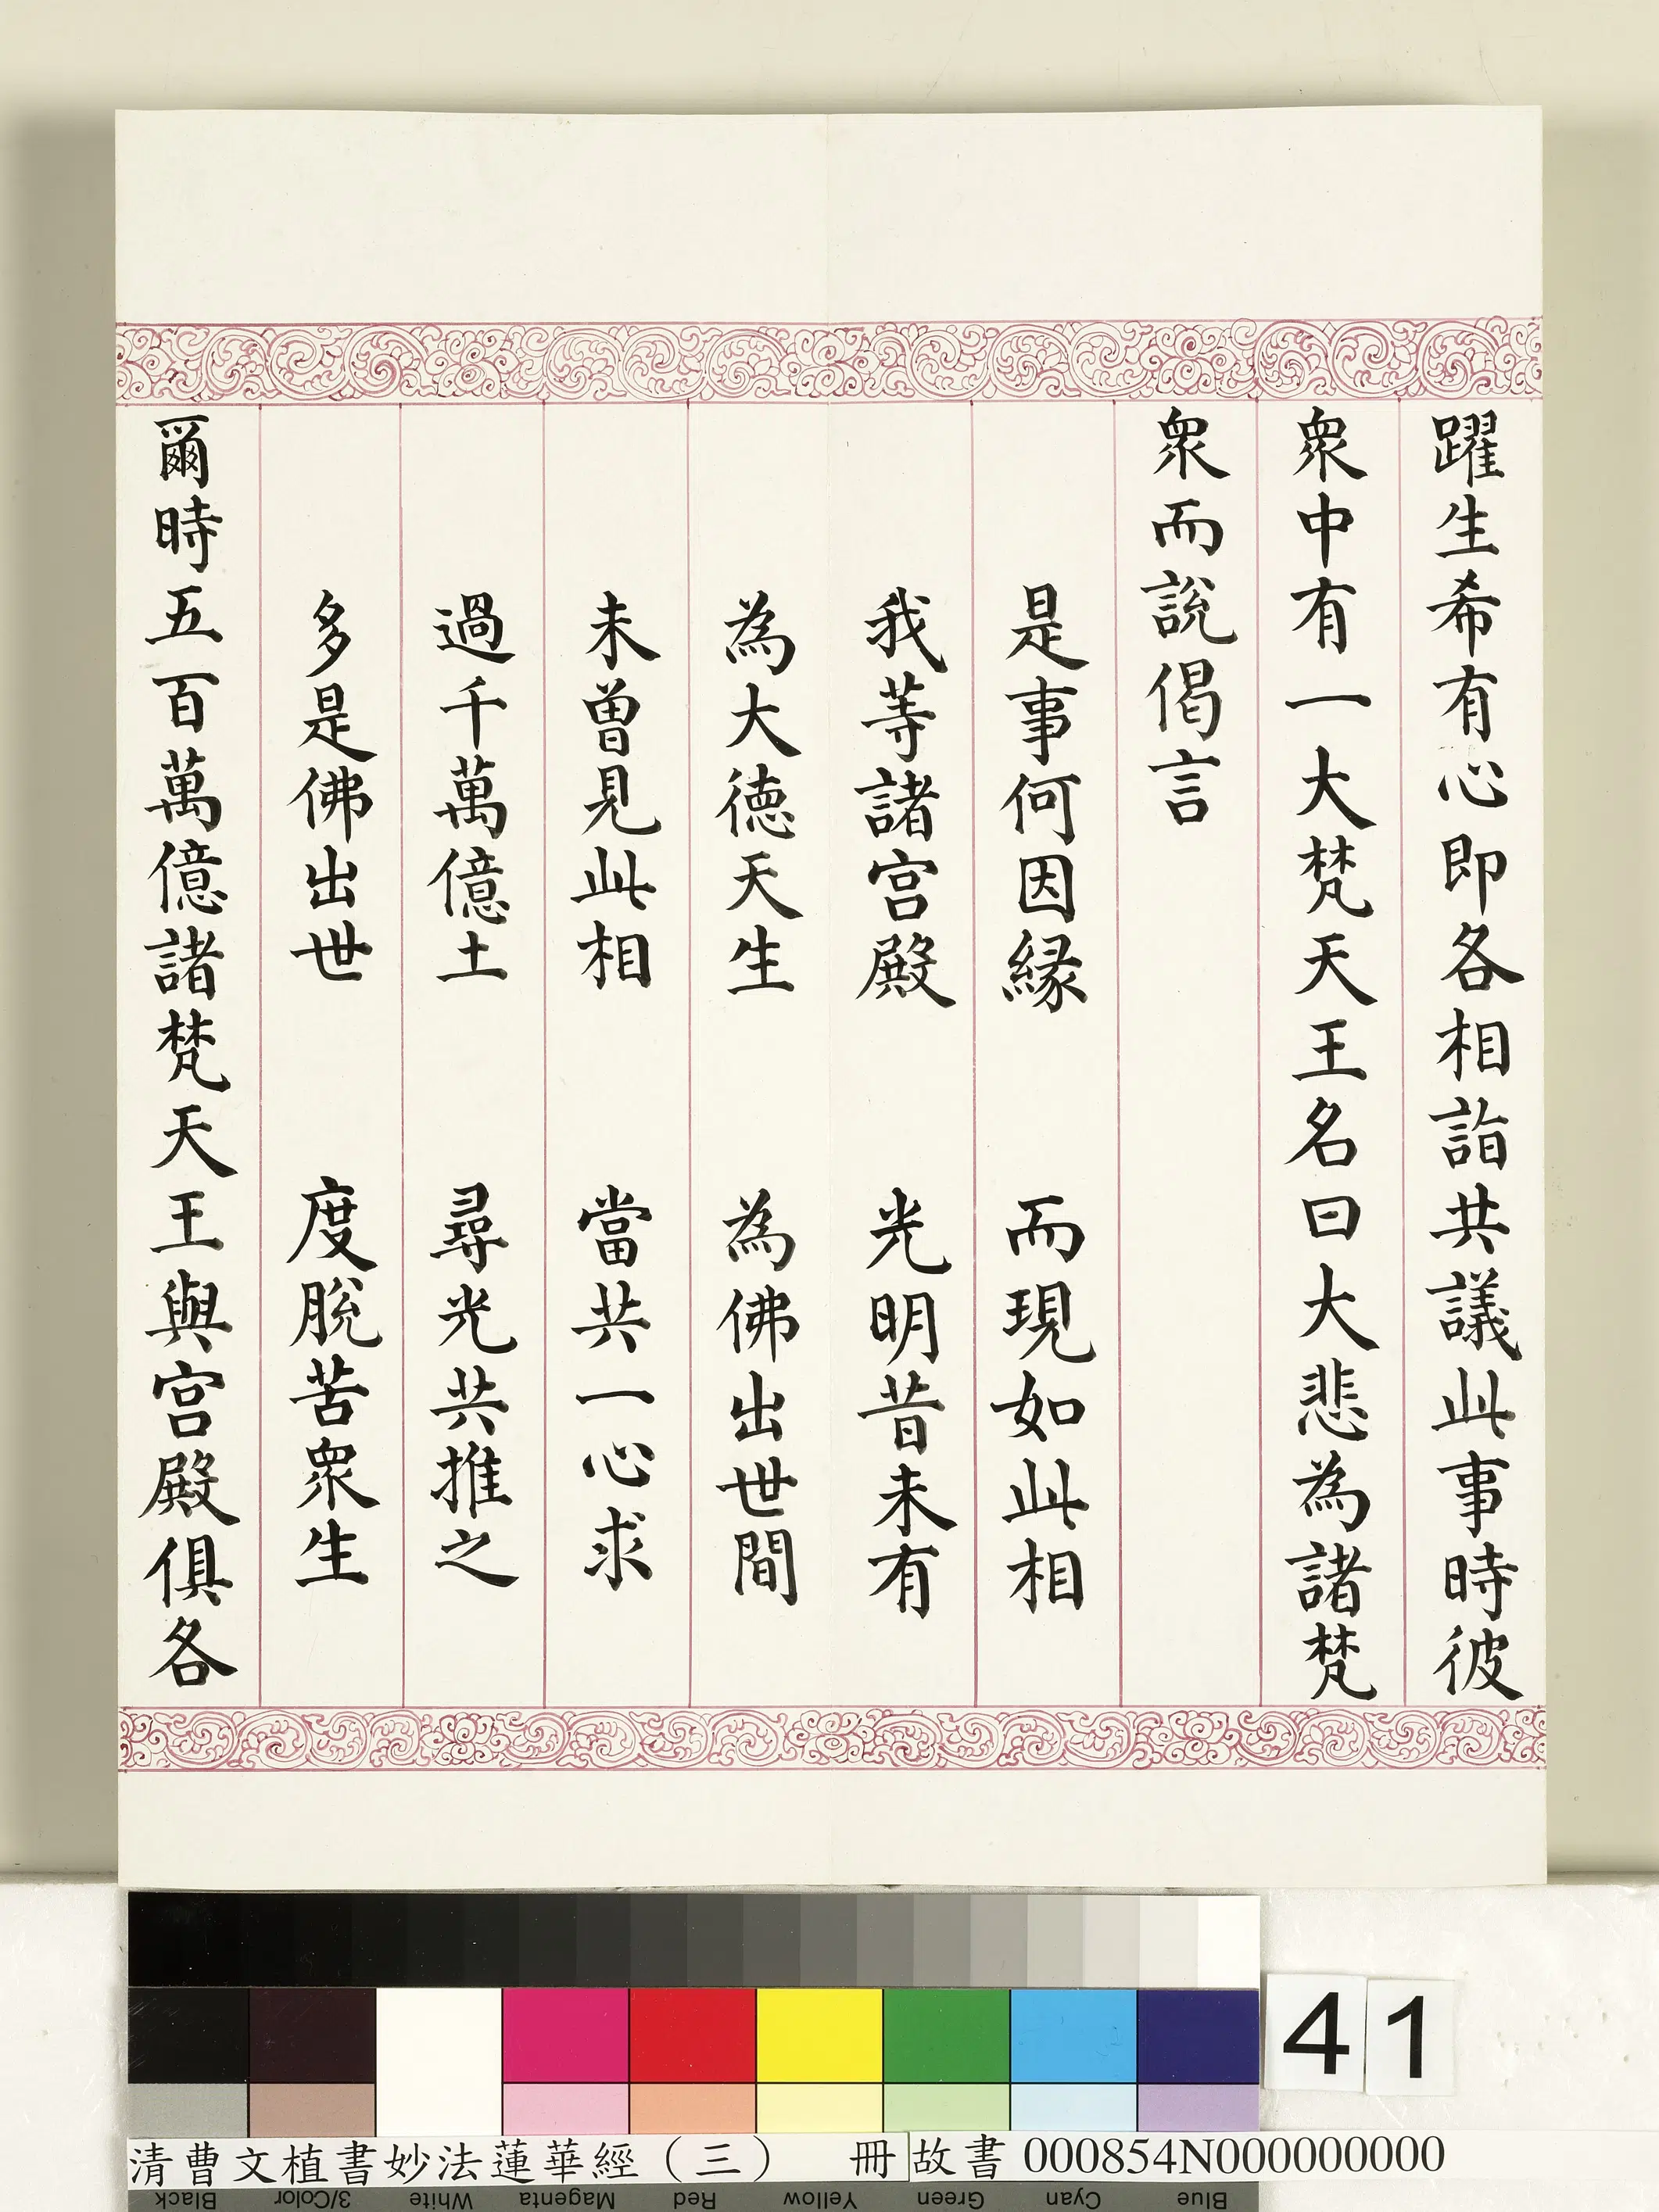 躍生希有心即各相詣共議此事時彼
衆中有一大梵天王名曰大悲為諸梵
衆而說偈言
是事何因縁　而現如此相
我等諸宫殿　光明昔未有
為大德天生　為佛出世間
未曽見此相　當共一心求
過千萬億土　尋光共推之
多是佛出世　度脫苦衆生
爾時五百萬億諸梵天王與宫殿俱各
41
清曹文植書妙法蓮華經（三）　冊
故書 000854N000000000
Black 3/Color White Magenta Red Yellow Green Cyan Blue